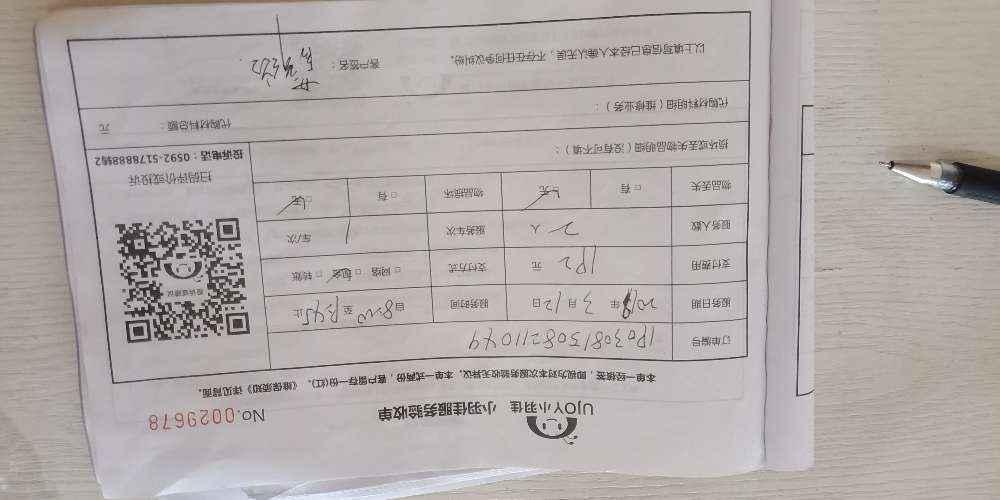 UJOY小羽佳 小羽佳服务验收单 No.0029678
本单一经核签，即视为对本次服务验收无异议，本单一式两份，客户留存一份(红)。《维保须知》详见背面。
订单编号 180308150821104
服务日期 2018年3月12日 服务时间 自8:20至 止
支付费用 182 元 支付方式 □网络 □现金 □转账
服务人数 2 人 服务车次 1 车/次
物品丢失 □有 □无 物品损坏 □有 □无
损坏或丢失物品明细（没有可不填）：
投诉或建议
扫码评价或投诉
投诉电话：0592-5178888转2
代购材料明细（维修业务）： 代购材料总额： 元
以上填写信息已经本人确认无误，不存在任何争议纠纷。 客户签名：